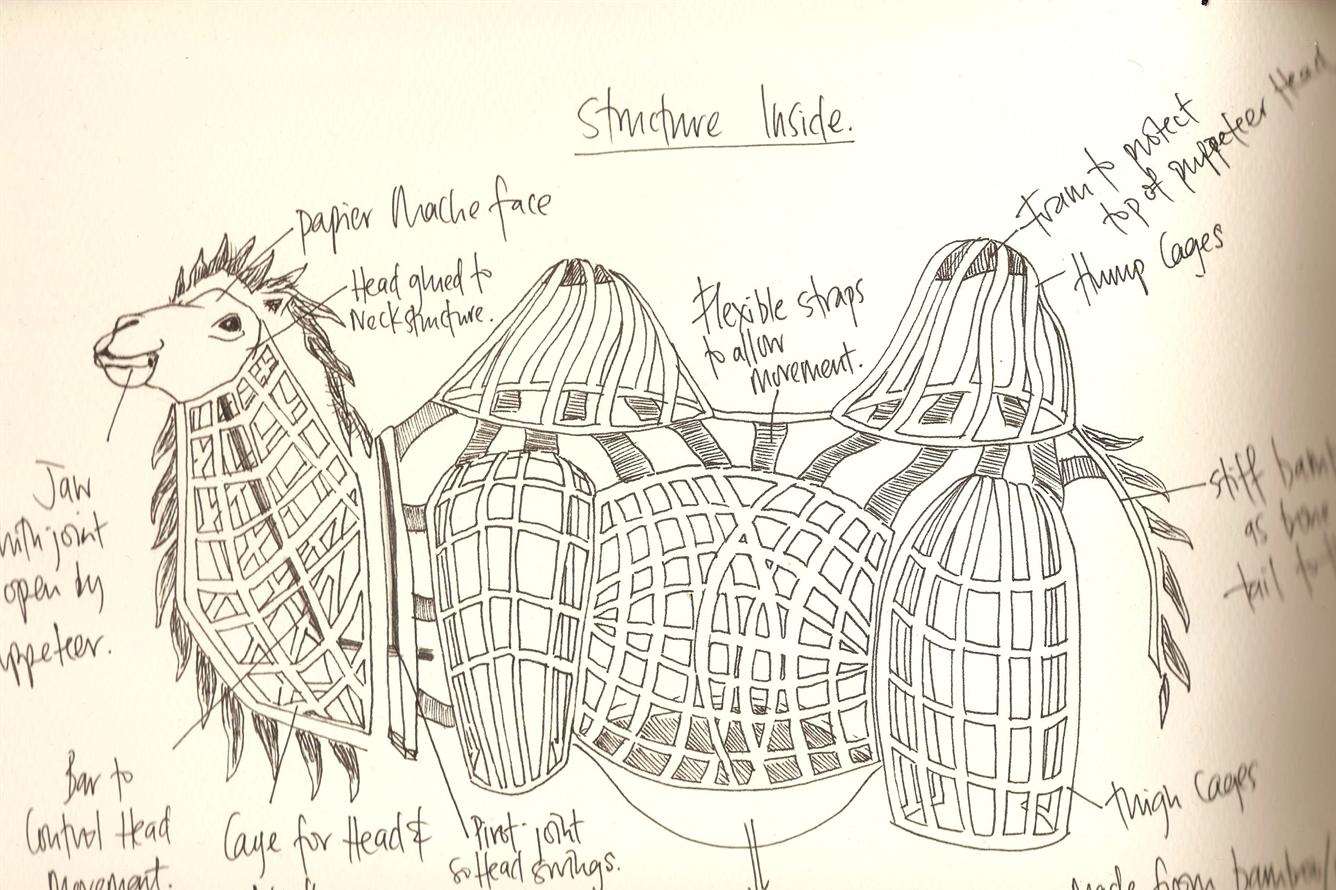 Structure Inside.
papier Mache face
Head glued to
Neck structure.
Flexible straps
to allow
movement.
Fram to protect
top of puppeteer Head
Hump Cages
stiff
as bone
tail
Jaw
with joint
open by
uppeteer.
Bar to
Control Head
Movement.
Cage for Head &
Pivot joint
so Head swings.
thigh Cages
made from bamboo/